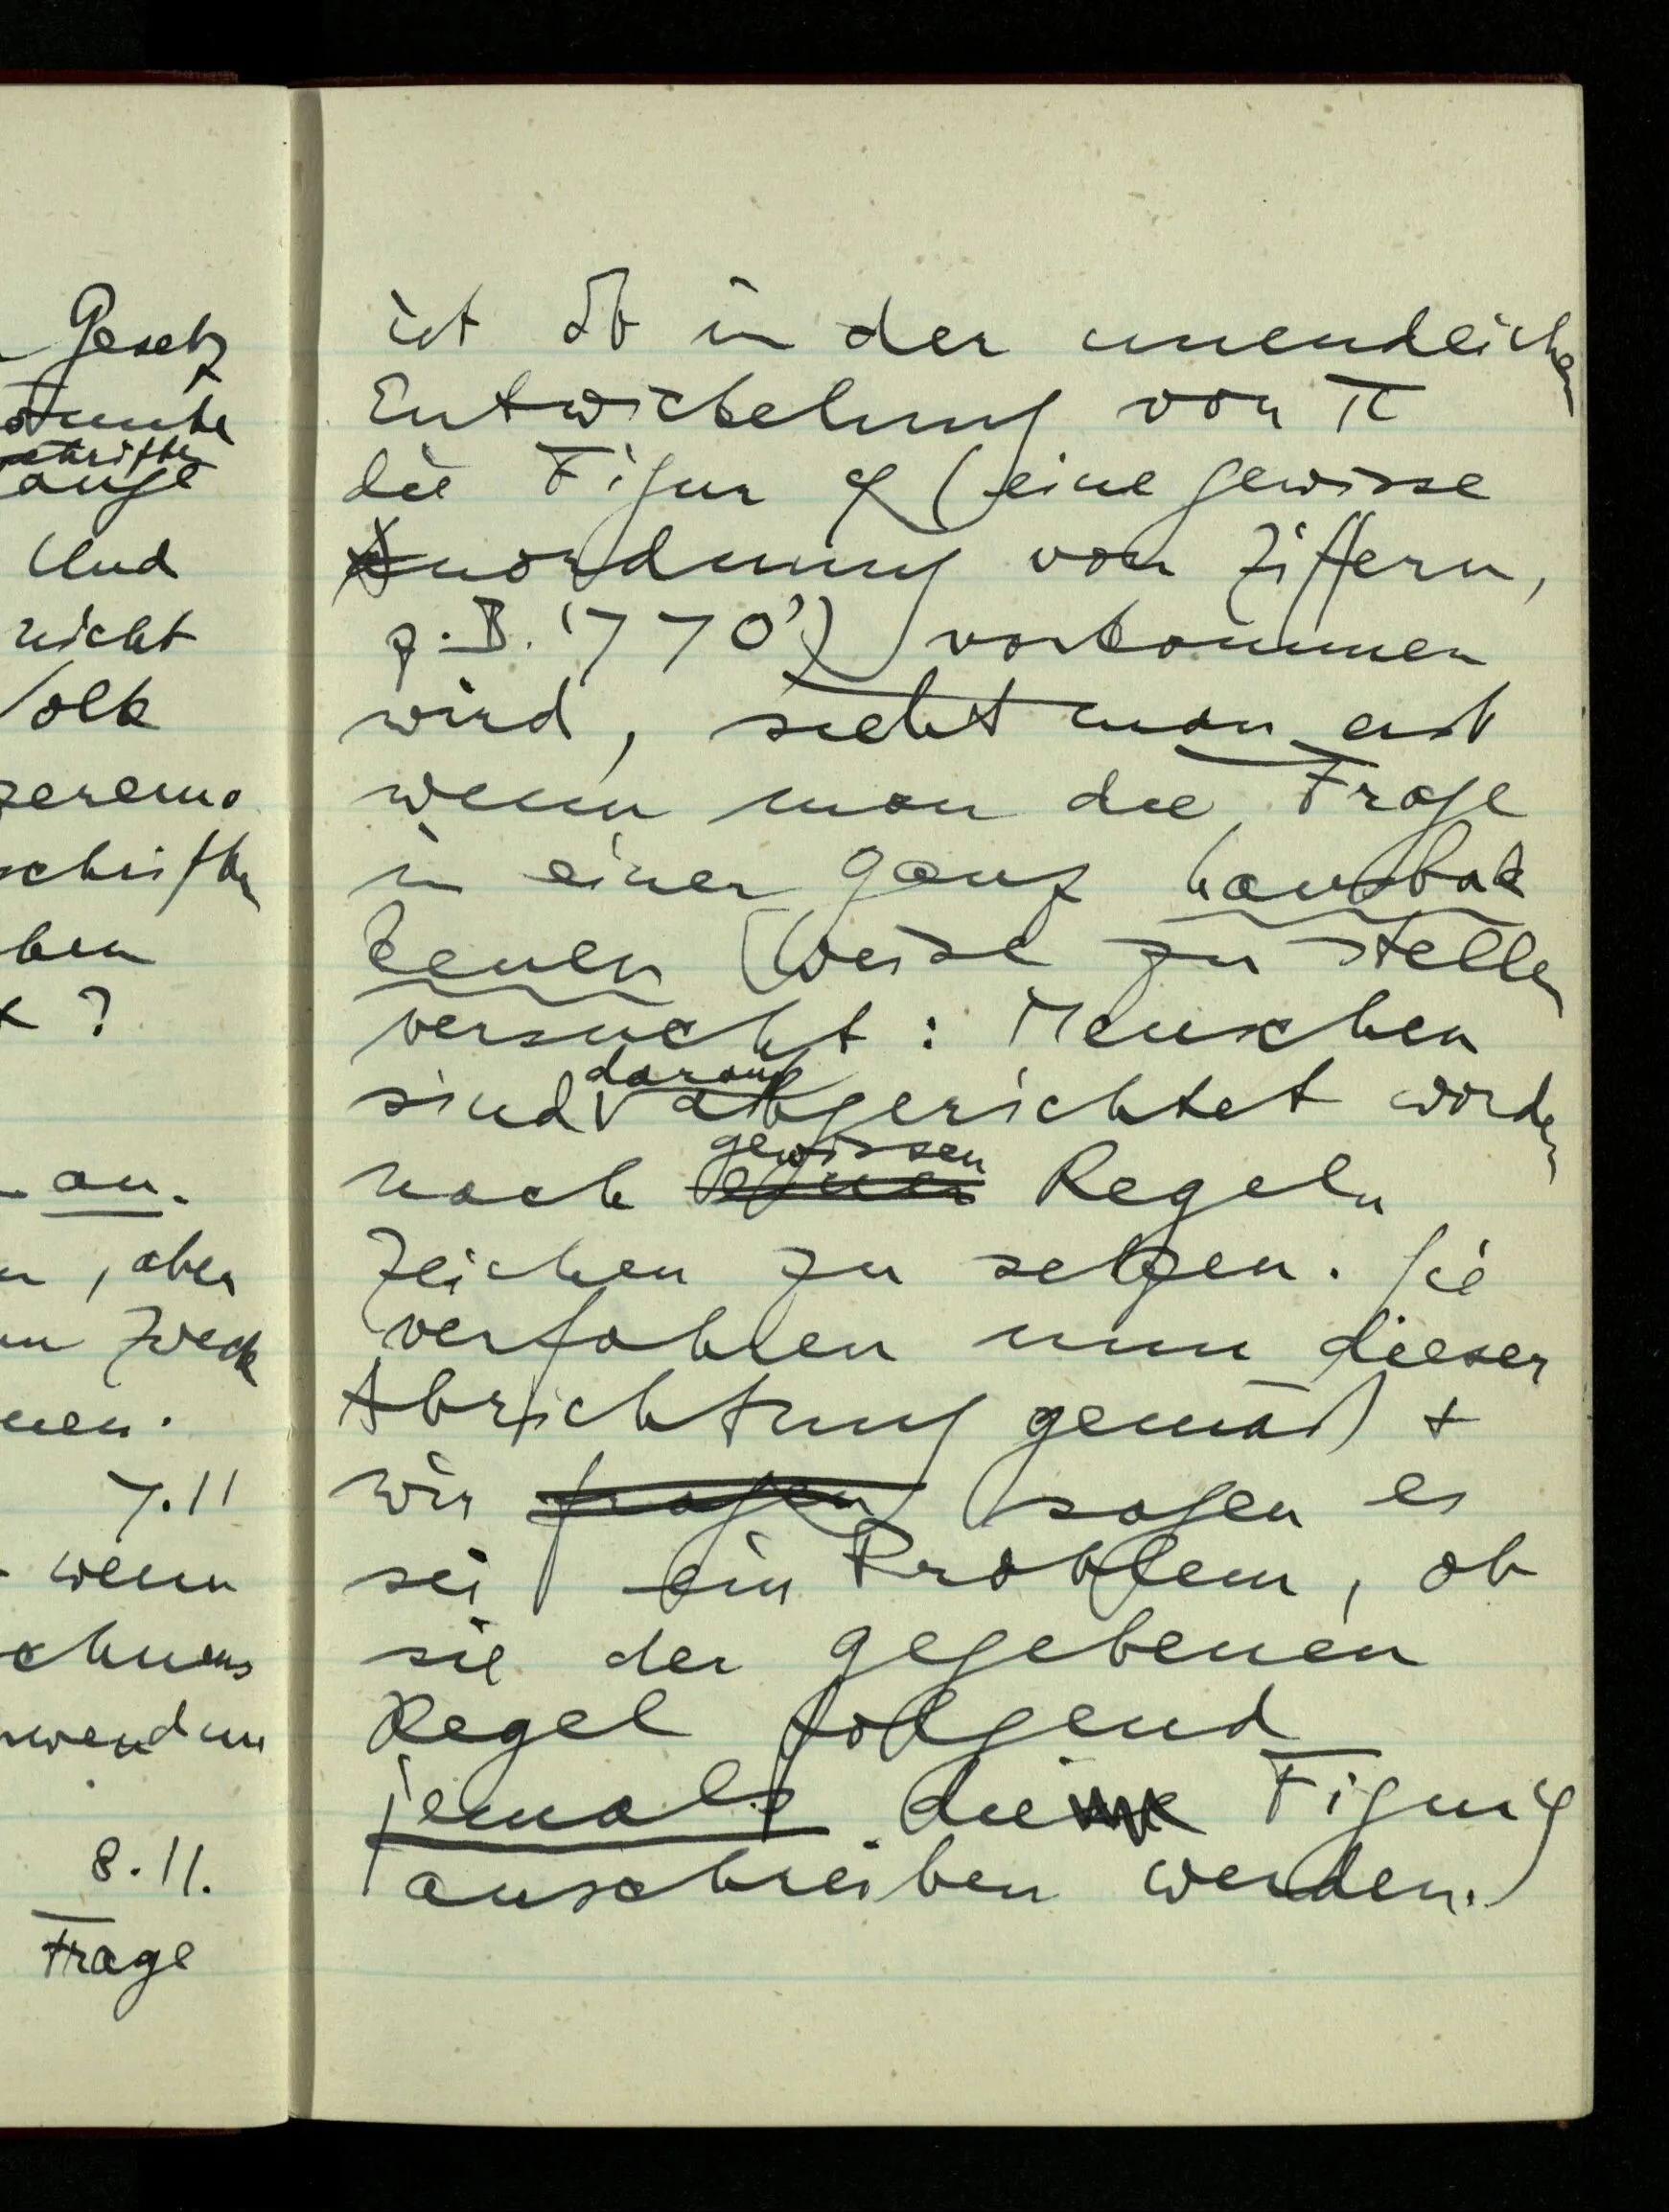 Gesetz
Und
nicht
Volk
zeremo
schriften
ben
?
an.
, aber
Zweck
nen.
7.11
wenn
chnens
wendun
8.11.
Frage
ist ob in der unendlichen
Entwickelung von π
die Figur φ (eine gewisse
Anordnung von Ziffern,
z.B. '770') vorkommen
wird, sieht man erst
wenn man die Frage
in einer ganz hausbak
kenen Weise zu stellen
versucht: Menschen
sind darauf abgerichtet worden
nach gewissen Regeln
Zeichen zu setzen. Sie
verfahren nun dieser
Abrichtung gemäß +
wir fragen sagen es
sei ein Problem, ob
sie der gegebenen
Regel folgend
jemals die Figur φ
anschreiben werden.